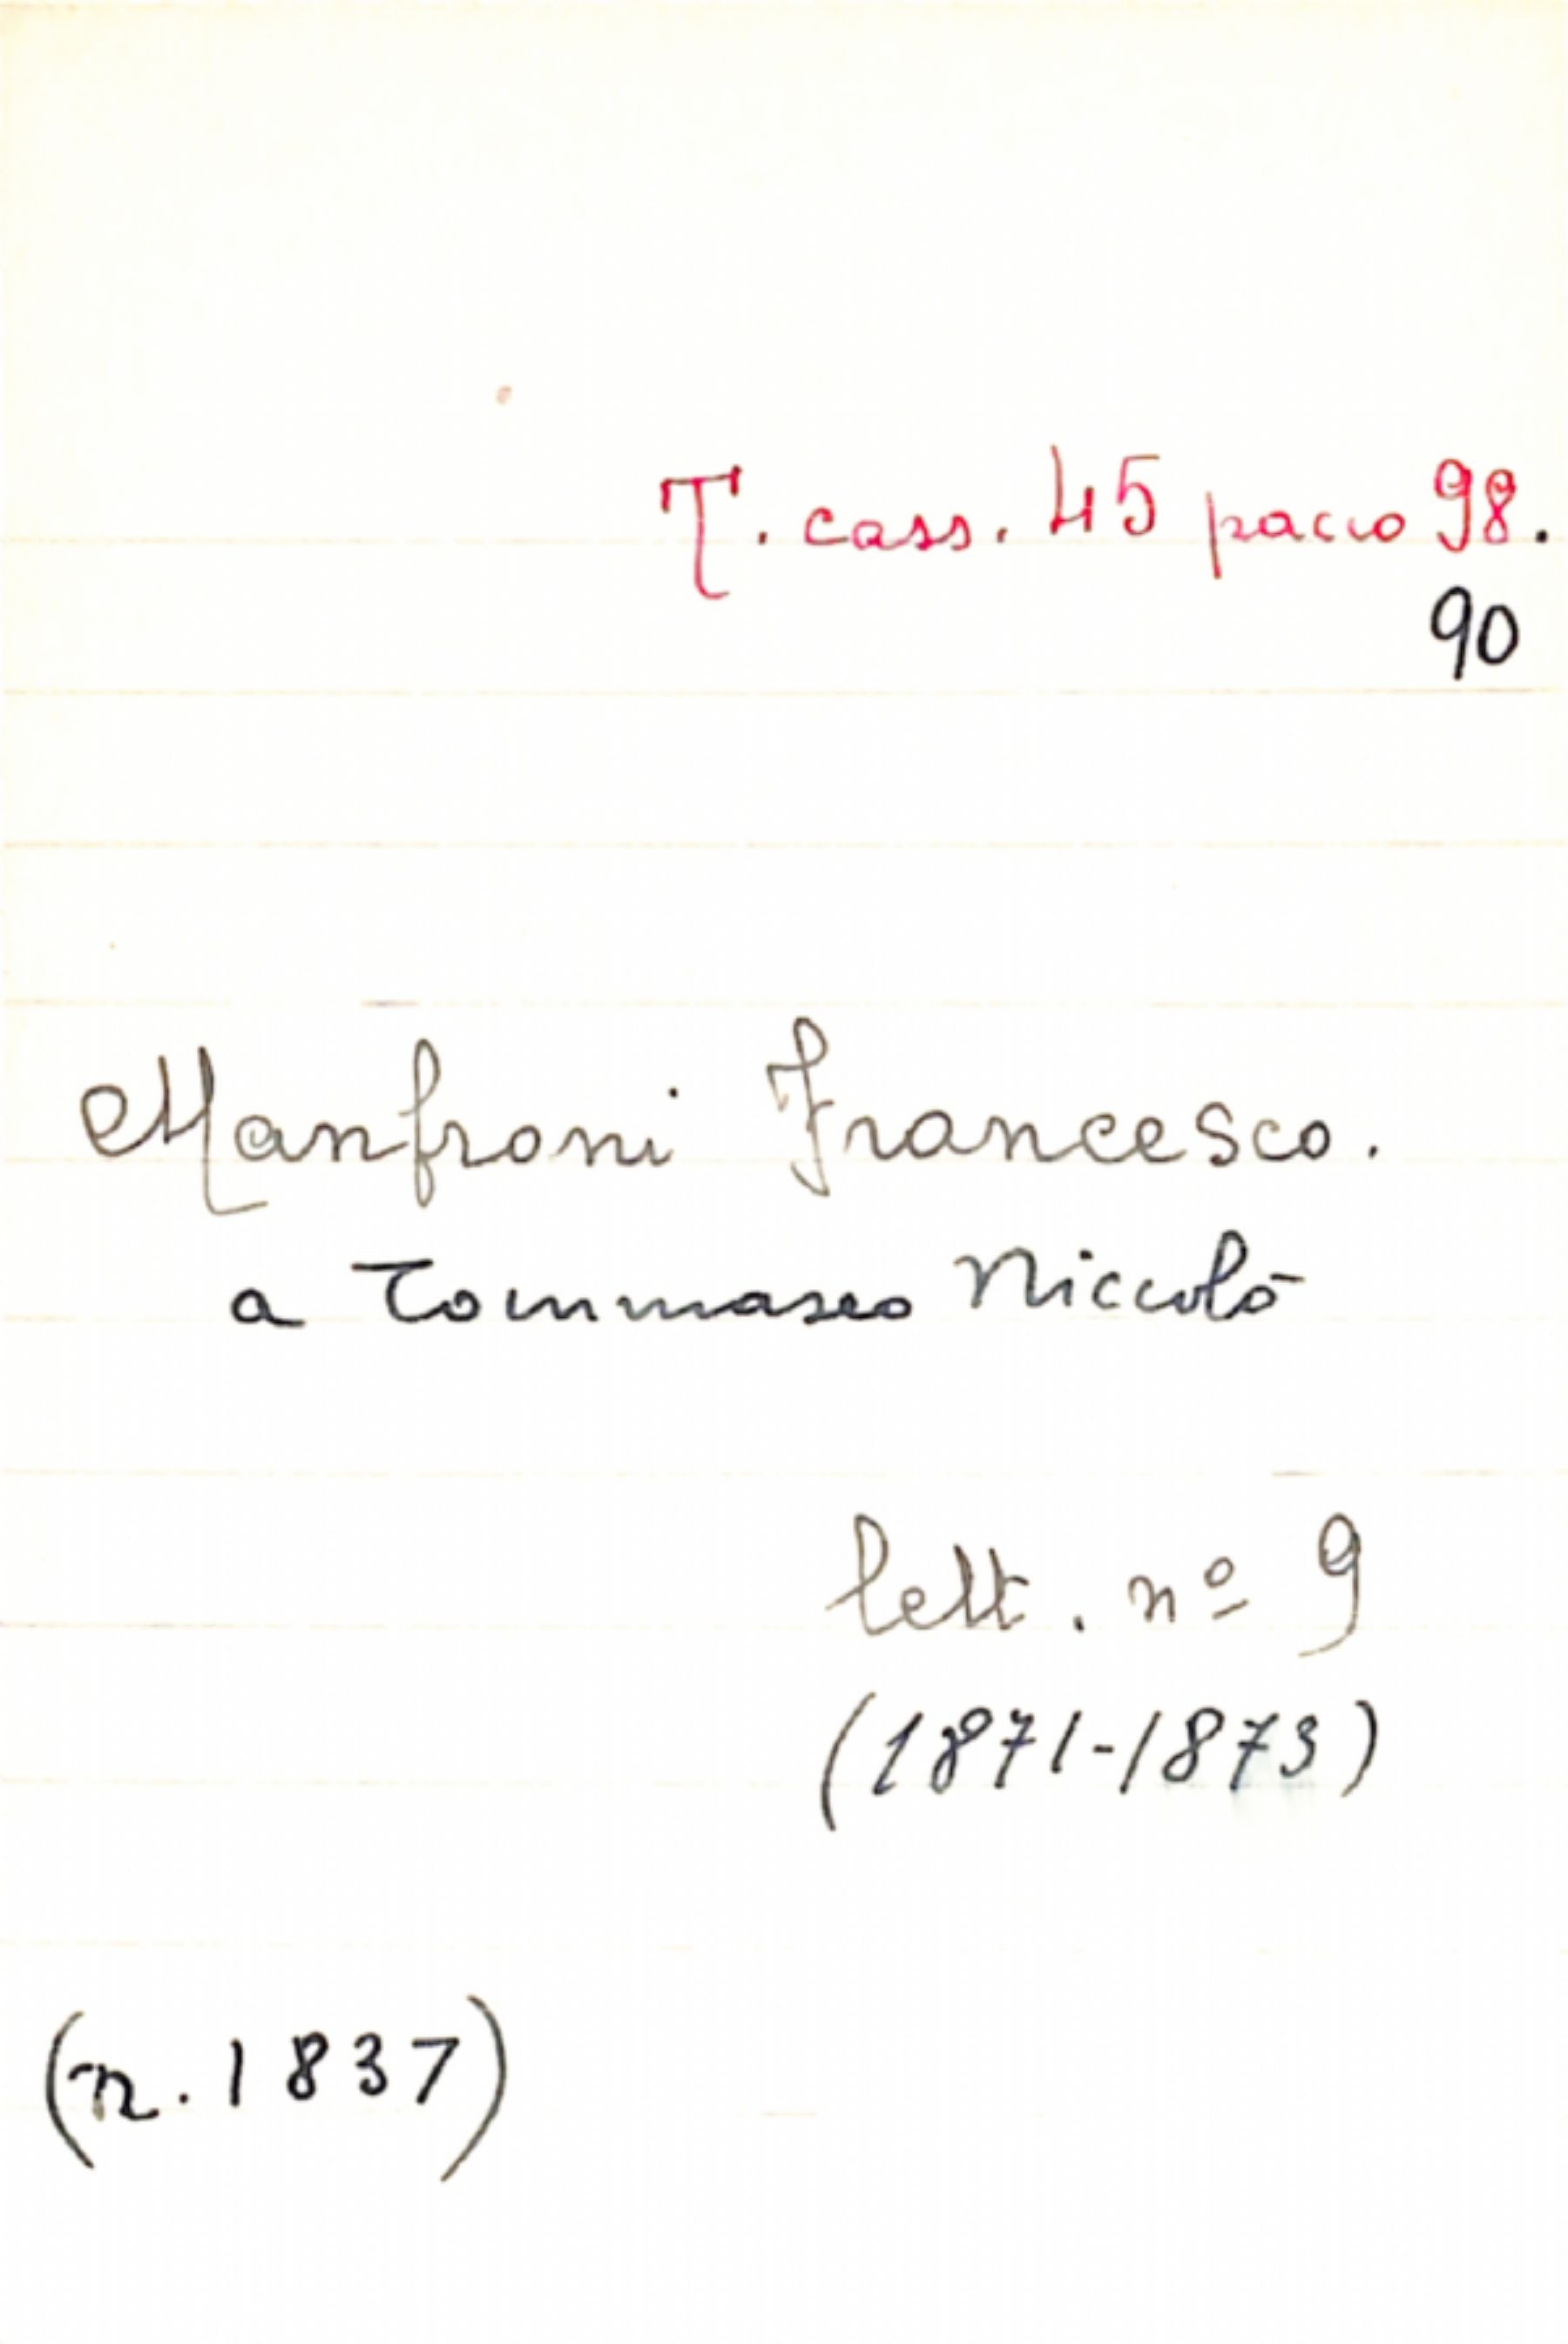 T. cass. 45 pacco 98.
90
Manfroni Francesco.
a Tommaseo Niccolò
lett. nº 9
(1871-1873)
(n. 1837)